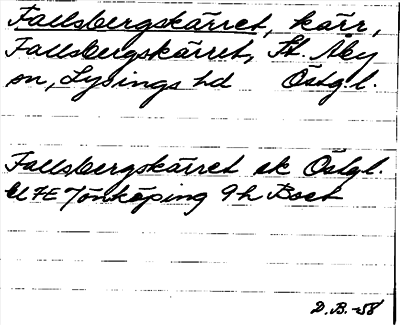 Fallsbergskärret, kärr,
Fallsbergskärret, St. Åby
sn, Lysings hd Östg.l.
Fallsbergskärret ek Östgl.
7E Jönköping 9h Bost
D.B. -58